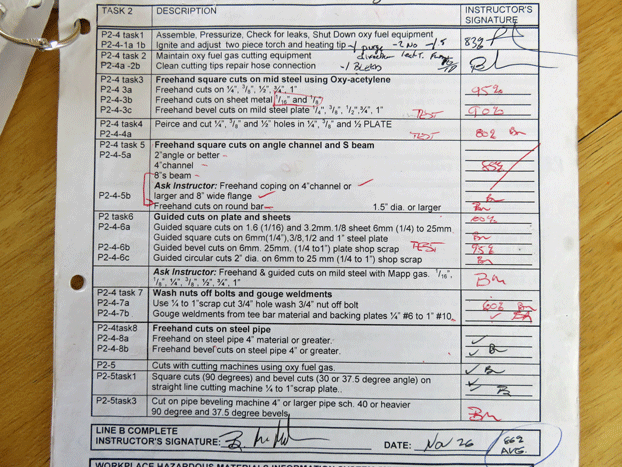 TASK 2 DESCRIPTION INSTRUCTOR'S SIGNATURE
P2-4 task1 Assemble, Pressurize, Check for leaks, Shut Down oxy fuel equipment
P2-4-1a 1b Ignite and adjust two piece torch and heating tip 83%
P2-4 task 2 Maintain oxy fuel gas cutting equipment
P2-4a -2b Clean cutting tips repair hose connection
P2-4 task3 Freehand square cuts on mid steel using Oxy-acetylene
P2-4 3a Freehand cuts on ¼", 3/8", ½", ¾", 1" 95%
P2-4-3b Freehand cuts on sheet metal 1/16" and 1/8"
P2-4-3c Freehand bevel cuts on mild steel plate 1/4", 3/8", 1/2", ¾", 1" TEST 90%
P2-4 task4 Peirce and cut ¼", 3/8" and ½" holes in ¼", 3/8" and ½ PLATE
P2-4-4a TEST 80%
P2-4 task 5 Freehand square cuts on angle channel and S beam
P2-4-5a 2"angle or better -
4"channel - 85%
8"s beam -
Ask Instructor: Freehand coping on 4"channel or
P2-4-5b larger and 8" wide flange
Freehand cuts on round bar 1.5" dia. or larger
P2 task6 Guided cuts on plate and sheets 80%
P2-4-6a Guided square cuts on 1.6 (1/16) and 3.2mm. 1/8 sheet 6mm (1/4) to 25mm
Guided square cuts on 6mm(1/4"),3/8,1/2 and 1" steel plate
P2-4-6b Guided bevel cuts on 6mm. 25mm. (1/4 to1") plate shop scrap TEST 95%
P2-4-6c Guided circular cuts 2" dia. on 6mm to 25 mm (1/4 to 1") shop scrap
Ask Instructor: Freehand & guided cuts on mild steel with Mapp gas. 1/16",
1/8", ¼", 3/8", ½", ¾", 1"
P2-4 task 7 Wash nuts off bolts and gouge weldments
P2-4-7a Use ¼ to 1"scrap cut 3/4" hole wash 3/4" nut off bolt
P2-4-7b Gouge weldments from tee bar material and backing plates ¼" #6 to 1" #10
P2-4task8 Freehand cuts on steel pipe
P2-4-8a Freehand on steel pipe 4" material or greater.
P2-4-8b Freehand bevel cuts on steel pipe 4" or greater.
P2-5 Cuts with cutting machines using oxy fuel gas.
P2-5task1 Square cuts (90 degrees) and bevel cuts (30 or 37.5 degree angle) on
straight line cutting machine ¼ to 1"scrap plate..
P2-5task3 Cut on pipe beveling machine 4" or larger pipe sch. 40 or heavier
90 degree and 37.5 degree bevels
LINE B COMPLETE
INSTRUCTOR'S SIGNATURE: DATE: Nov 26 AVG.